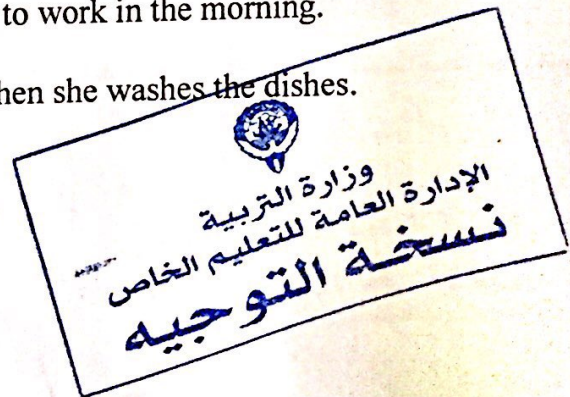 to work in the morning.
hen she washes the dishes.
وزارة التربية
الإدارة العامة للتعليم الخاص
نسخة التوجيه